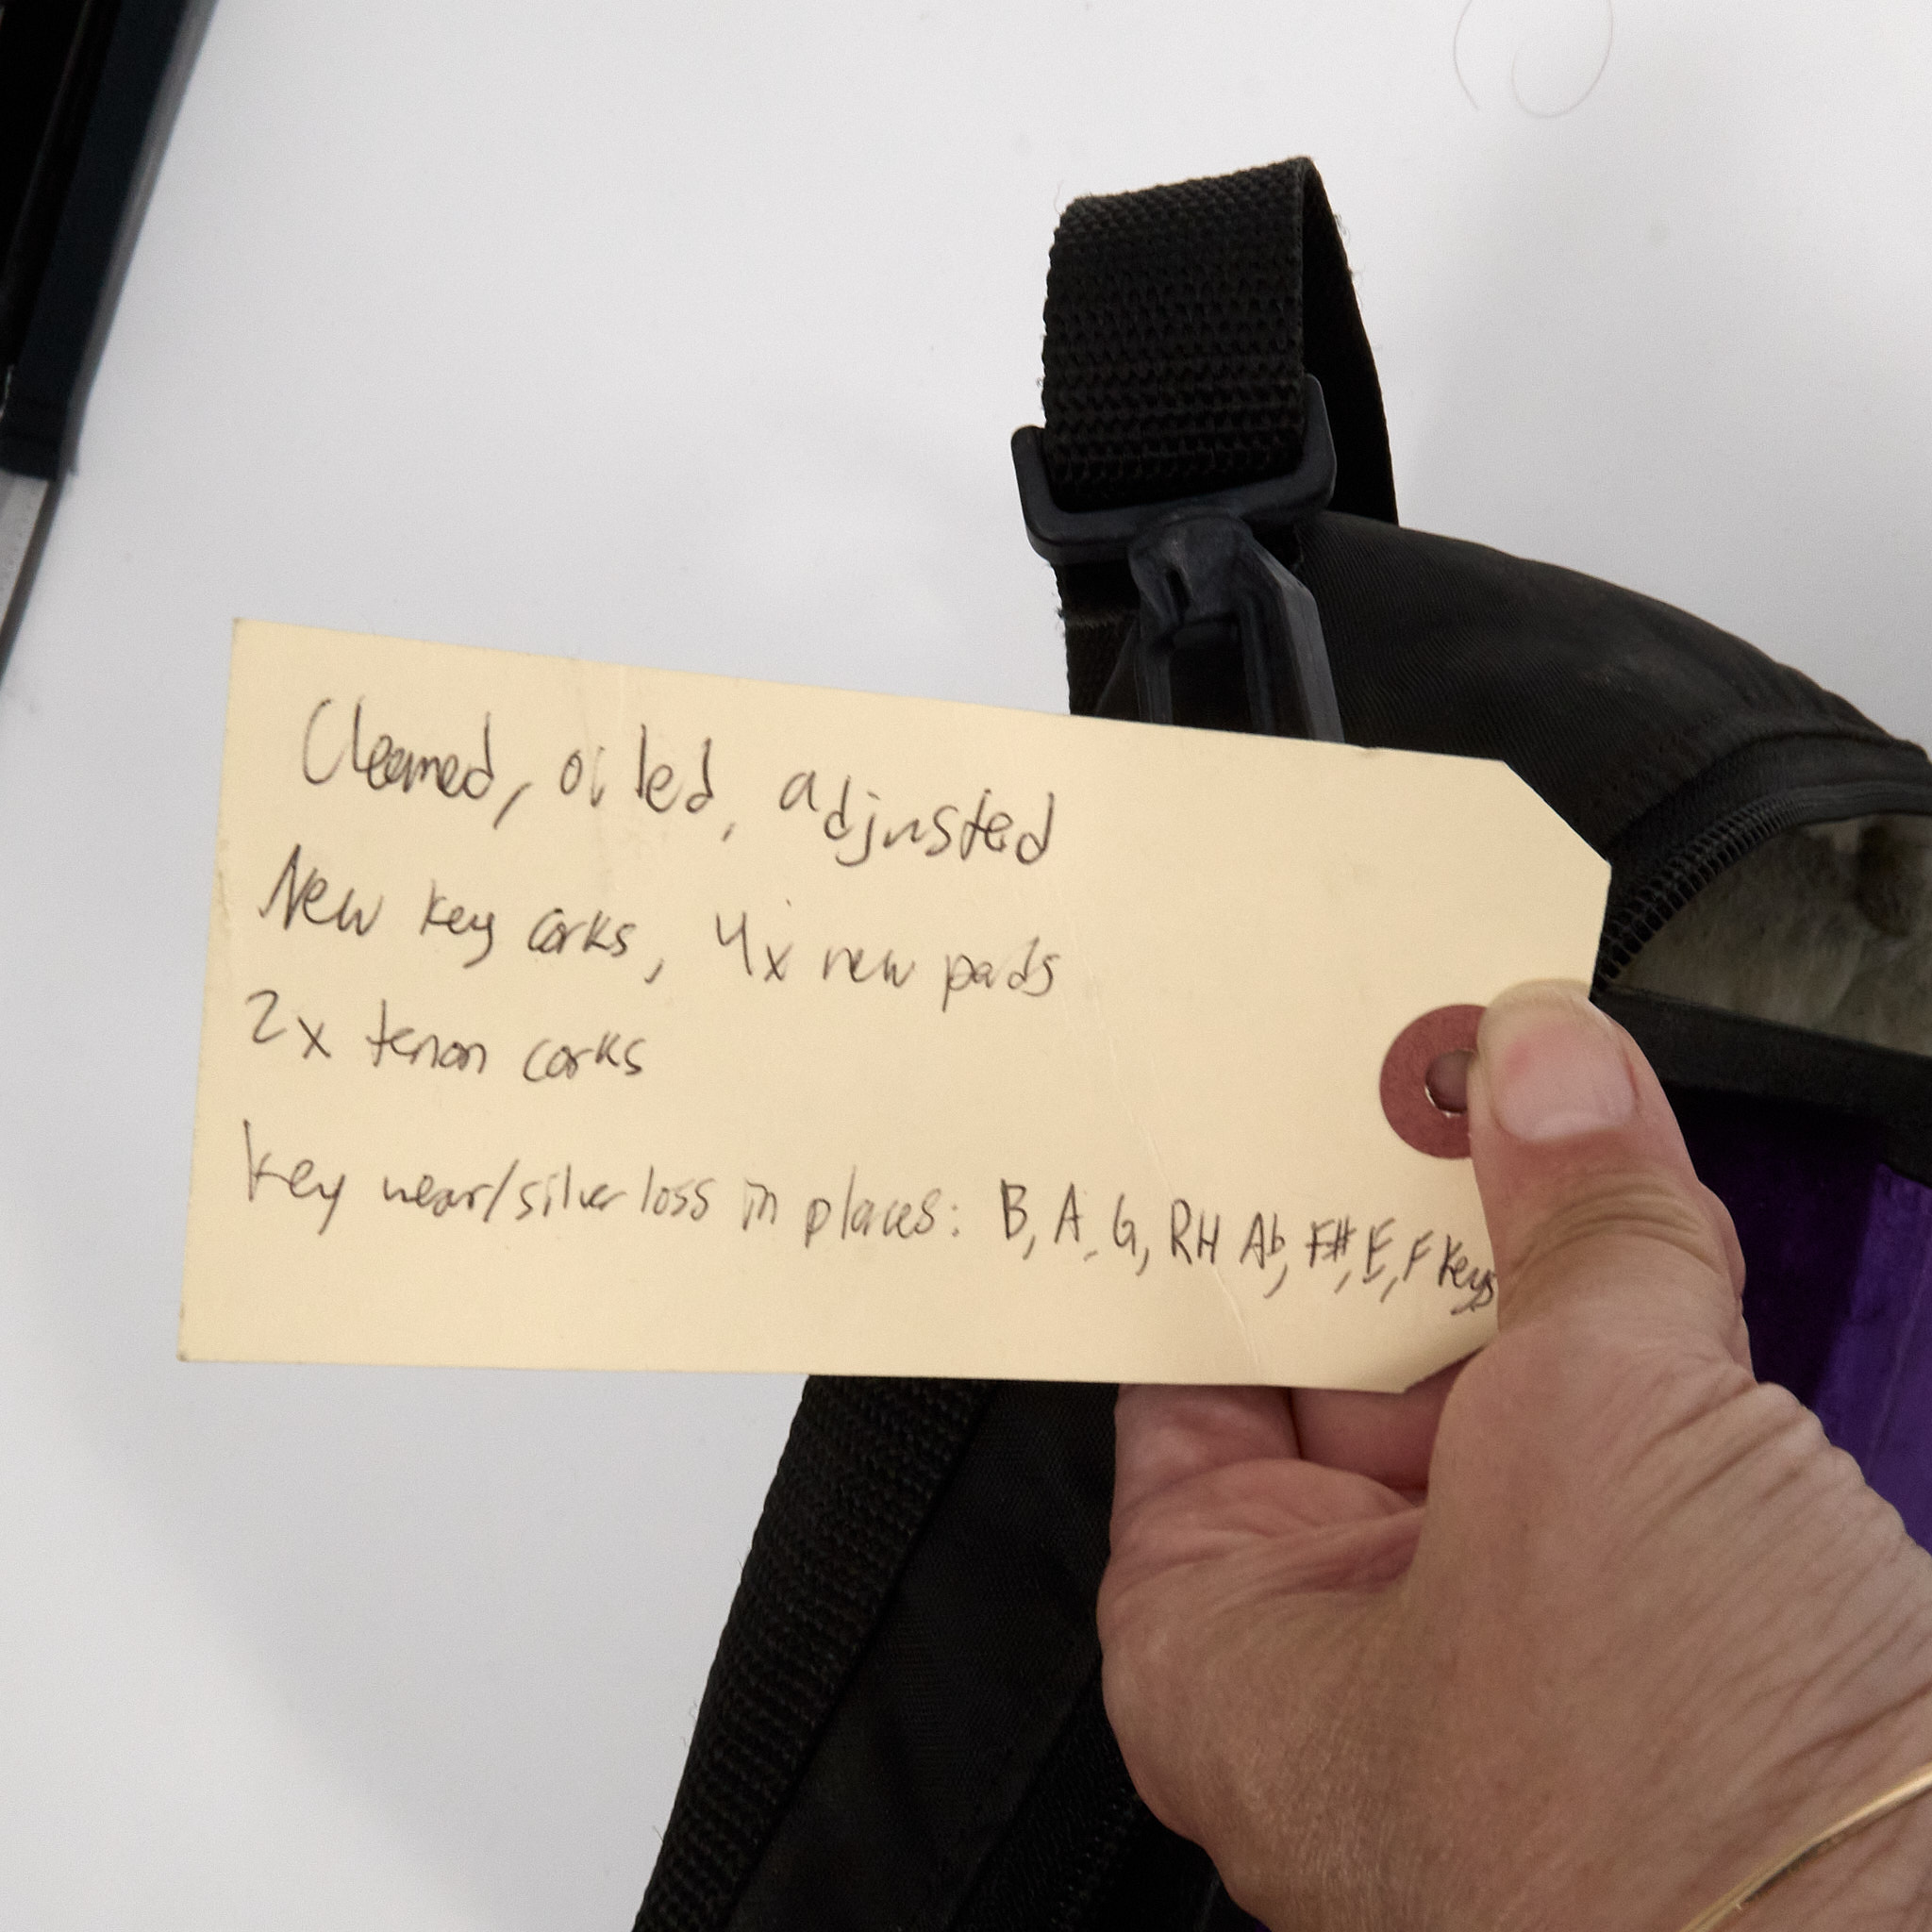 Cleaned, oiled, adjusted
New key corks, 4x new pads
2x tenon corks
key wear/silver loss in places: B, A, G, RH Ab, F#, E, F keys